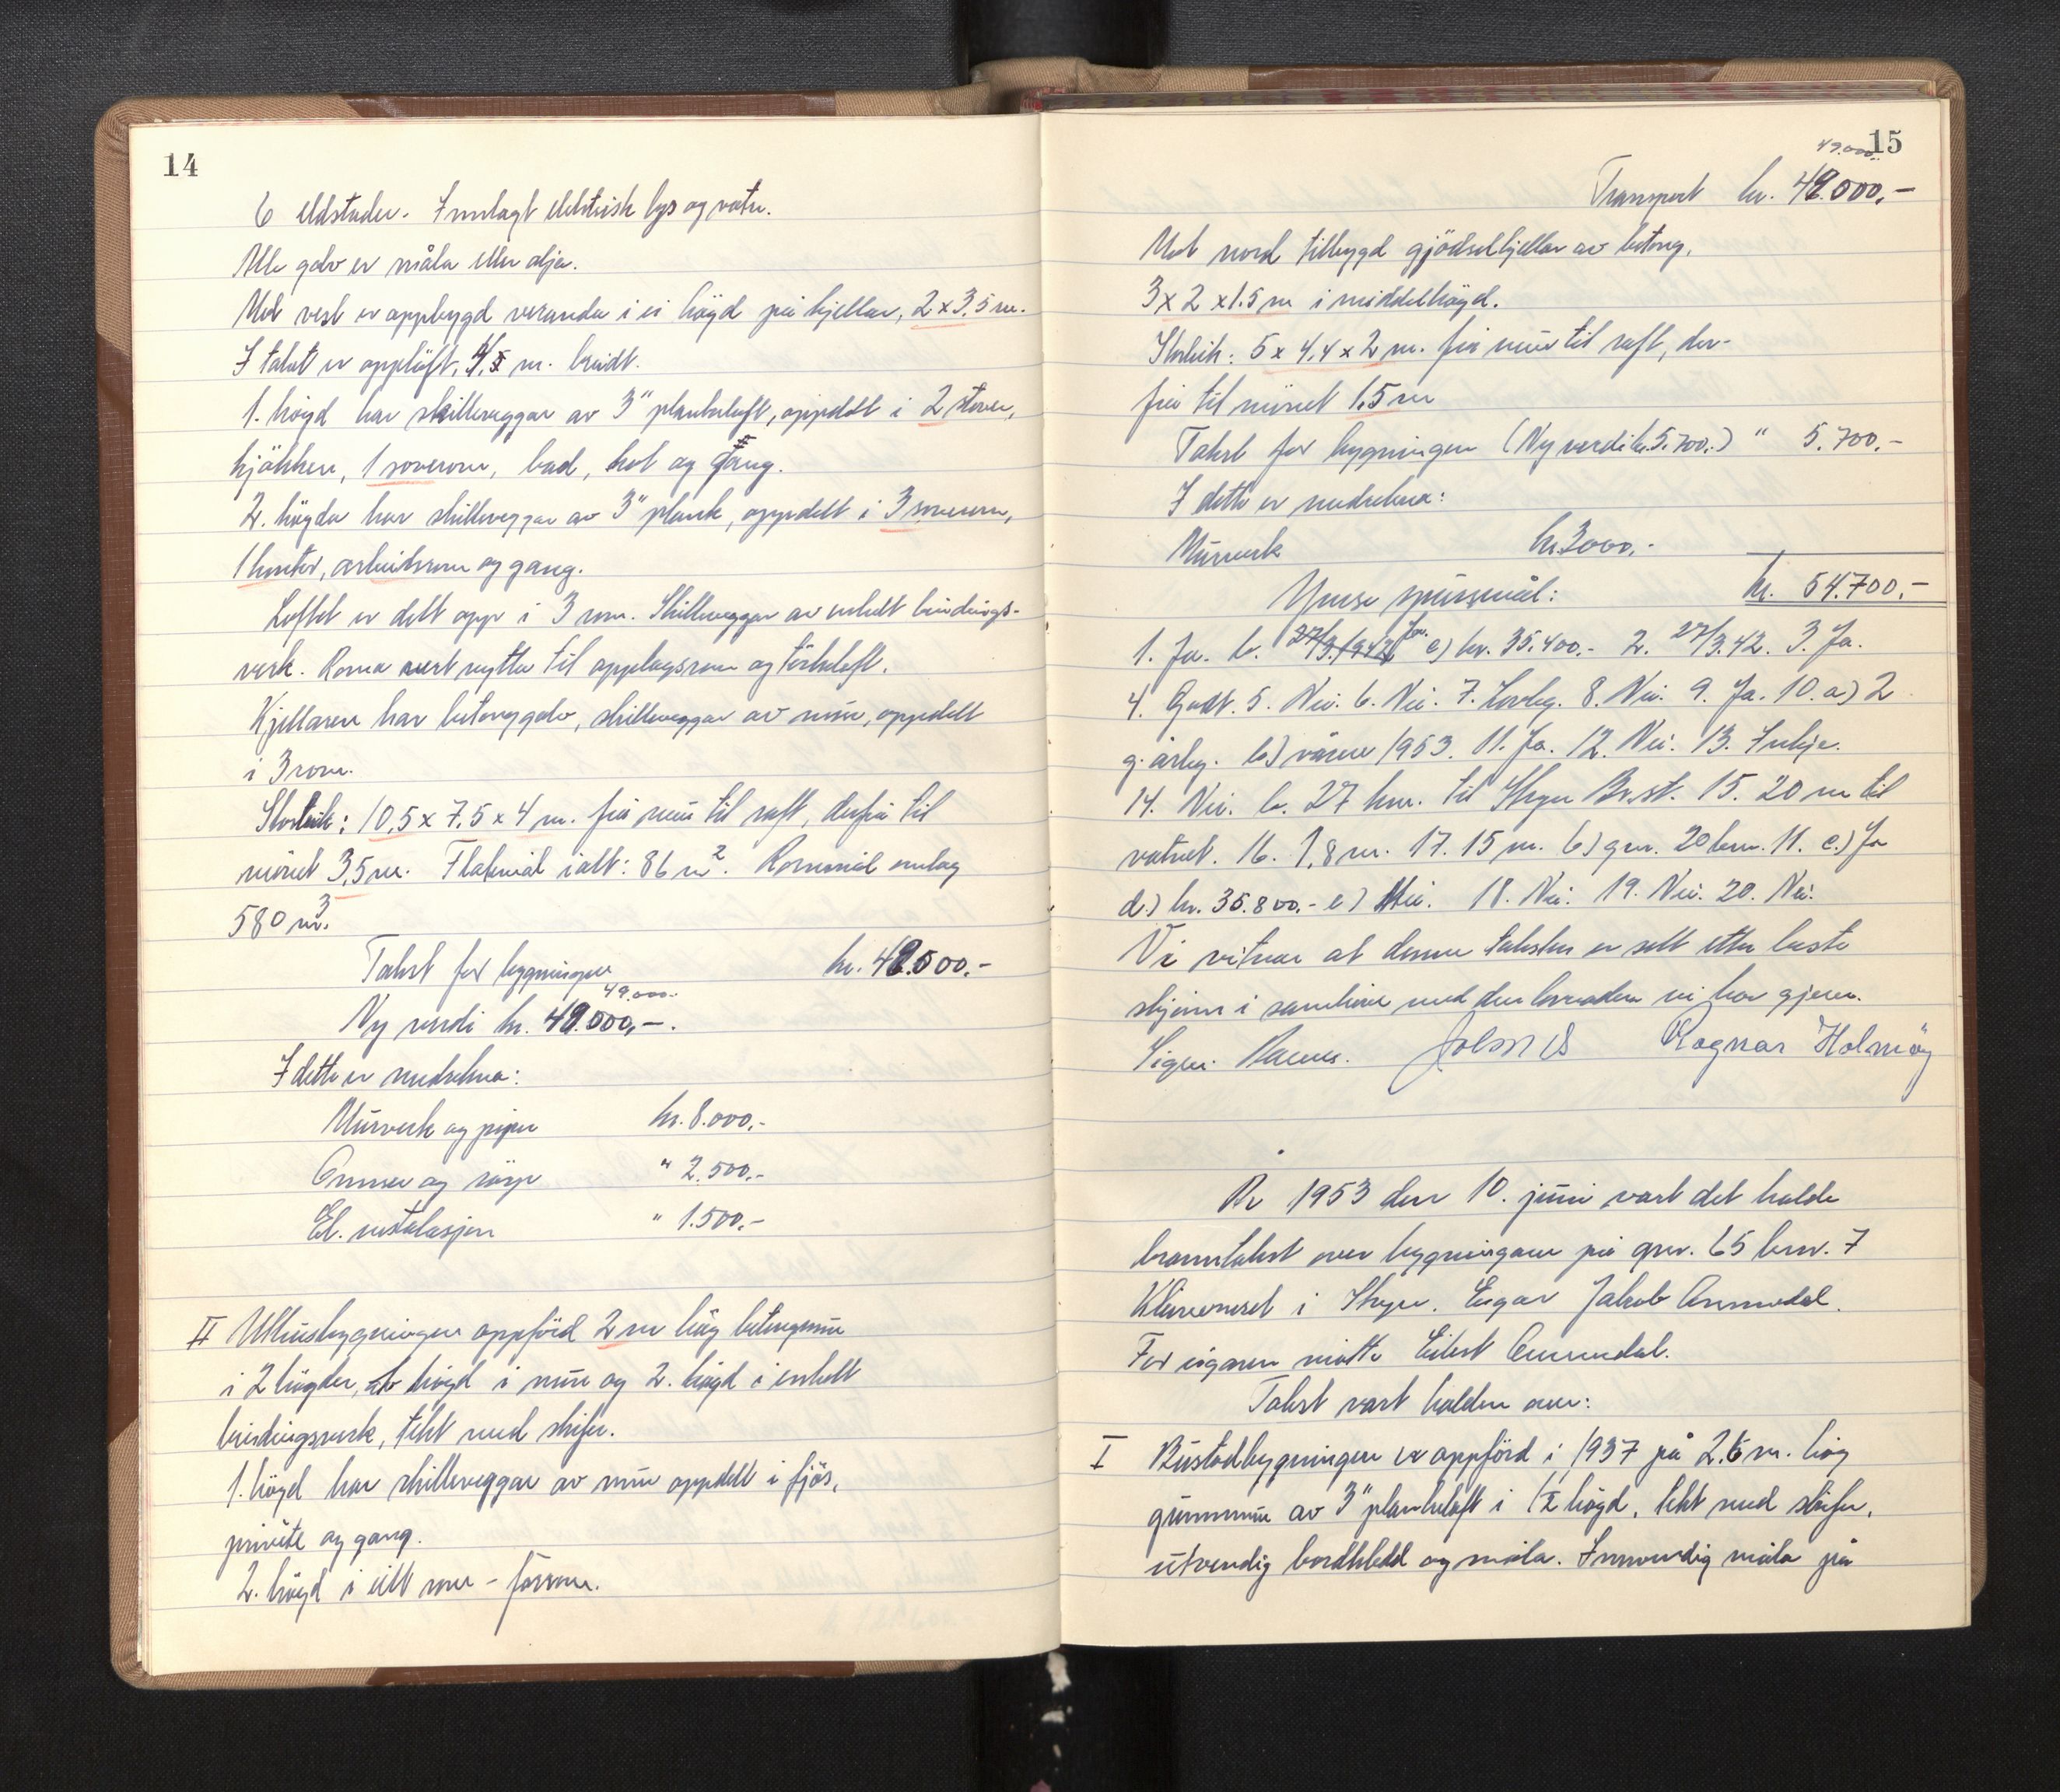 14
6 eldstader. Innlagt elektrisk lys og vatn.
Alle golv er måla eller olja.
Mot vest er oppbygd veranda i ei högd på kjellar, 2 x 3,5 m.
I taket er opplöft, 4,5 m. breidt.
1. högd har skilleveggar av 3" plankeloft, oppdelt i 2 stover,
kjökken, 1 soverom, bad, kot og Gang.
2. högda har skilleveggar av 3" plank, oppdelt i 3 soverom,
1 kontor, arbeidsrom og gang.
Loftet er delt opp i 3 rom. Skilleveggar av enkelt bindings-
verk. Roma vert nytta til opplagsrom og törkeloft.
Kjellaren har betonggolv, skilleveggar av mur, oppdelt
i 3 rom.
Storleik: 10,5 x 7,5 x 4 m. frå mur til raft, derfrå til
mönet 3,5 m. Flatemål ialt: 86 m². Romamål omlag
580 m³.
Takst for bygningen kr. 49.000.-
49.000.-
Ny verdi kr. 49.000,-.
I dette er medrekna:
Murverk og piper kr. 8.000,-
Omner og röyr " 2.500,-
El. installasjon " 1.500,-
II Uthusbygningen oppförd 2 m hög betongmur
i 2 högder, högd i mur og 2. högd i enkelt
bindingsverk, tekt med skifer.
1. högd har skilleveggar av mur oppdelt i fjös,
privéte og gang.
2. högd i eitt rom - forrom.
15
49.000.-
Transport kr. 49.000,-
Mot nord tilbygd gjödselkjellar av betong,
3 x 2 x 1.5 m i middelhögd.
Storleik: 5 x 4,4 x 2 m. frå mur til raft, der-
frå til mönet 1,5 m
Takst for bygningen (Ny verdi kr. 5.700.-) " 5.700,-
I dette er medrekna:
Murverk kr. 3000,-
Ymse spursmål: kr. 54.700,-
1. Ja. b. 27/3.1942 for. c) kr. 35.400.- 2. 27/3.42. 3. Ja.
4. Godt. 5. Nei. 6. Nei. 7. Lovleg. 8. Nei. 9. Ja. 10. a) 2
g. årleg. b) våren 1953. 11. Ja. 12. Nei. 13. Inkje.
14. Nei. b. 27 km. til Stryn Br.st. 15. 20 m til
vatnet. 16. 1,8 m. 17. 15 m. b) gnr. 20 bnr. 11. c.) Ja
d.) kr. 35.800.- e) Nei. 18. Nei. 19. Nei. 20. Nei.
Vi vitnar at denne taksten er sett etter beste
skjönn i samhöve med den lovnaden vi har gjeve.
Ragnar Holmöy
År 1953 den 10. juni vart det halde
branntakst over bygningane på gnr. 65 bnr. 7
i Stryn. Eigar Jakob Årnedal.
For eigaren mötte
Takst vart halden over:
I Bustadbygningen er oppförd i 1937 på 2.5 m. hög
grunnmur av 3" plankeloft i 1½ högd, tekt med skifer,
utvendig bordkledd og måla. Innvendig måla på